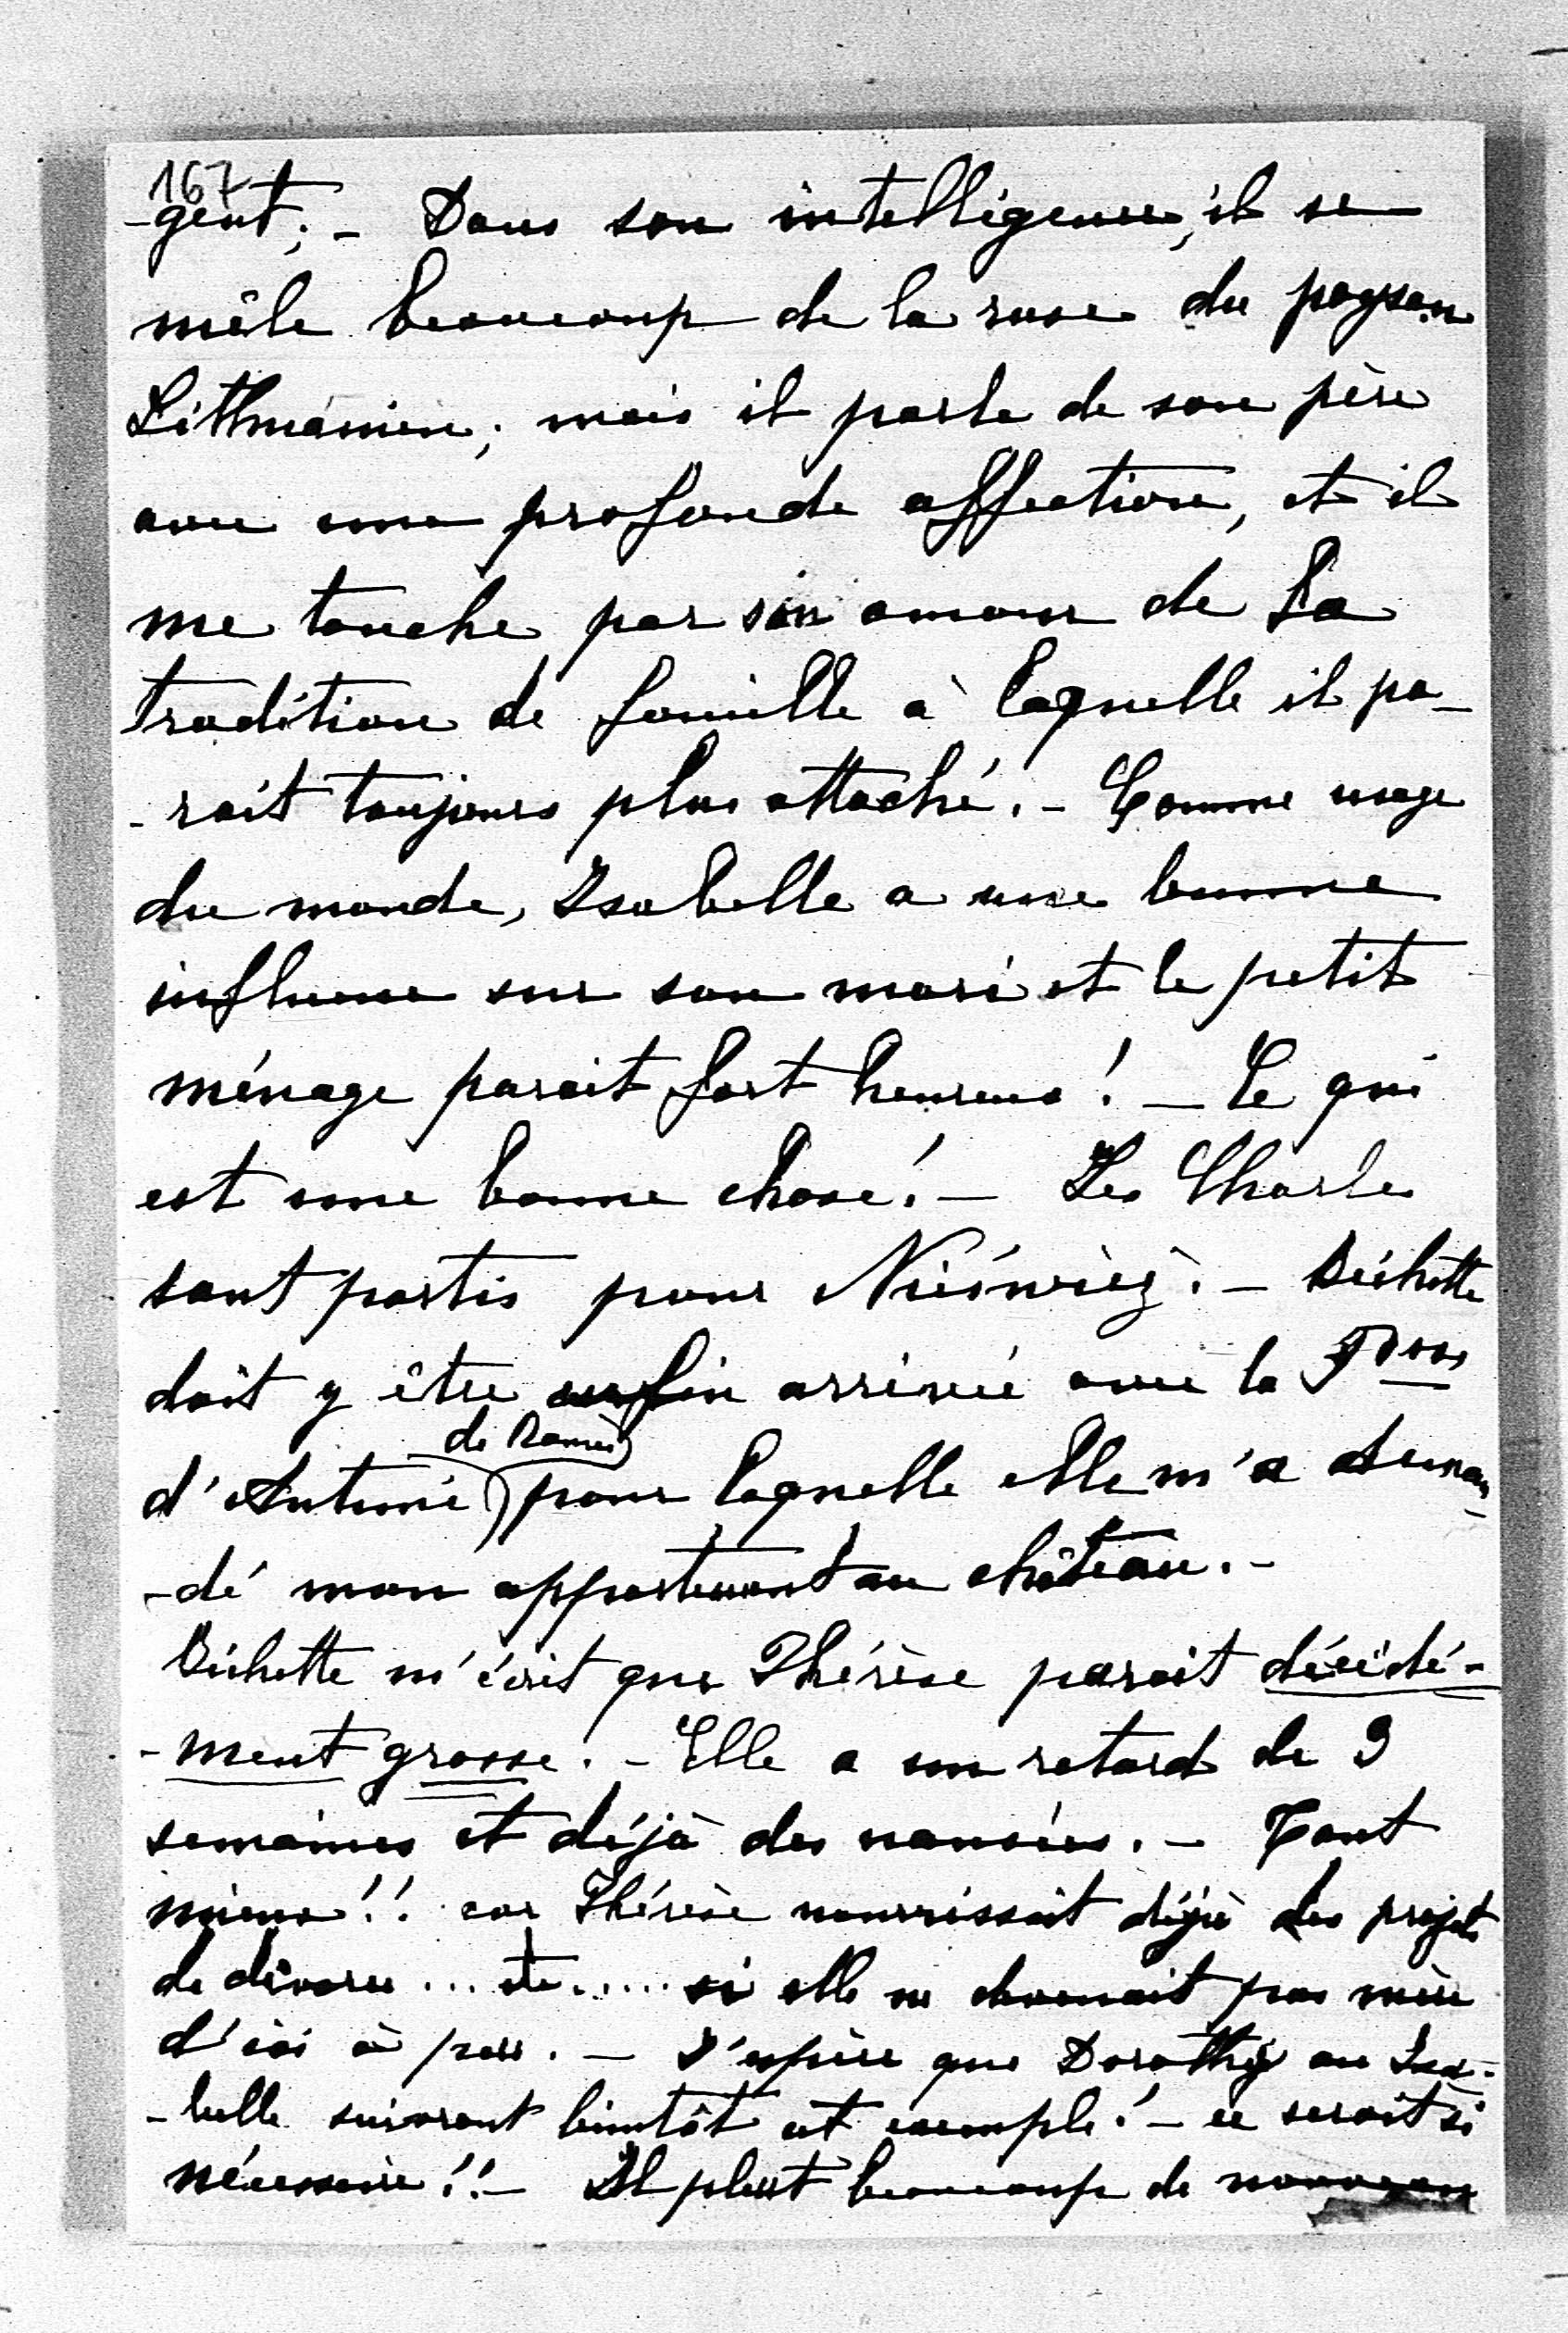 167
-gent; - Dans son intelligence, il se
mêle beaucoup de la ruse du paysan
Lithuanien; mais il parle de son père
avec une profonde affection, et il
me touche par son amour de la
tradition de famille à laquelle il pa-
-rait toujours plus attaché. - Comme usage
du monde, Isabelle a une bonne
influence sur son mari et le petit
ménage parait fort heureux! - Ce qui
est une bonne chose! - Les Charles
sont partis pour Nieśwież. - Bichette
doit y être enfin arrivée avec la Psse
de Rome)
d'Antuni) pour laquelle elle m'a deman-
-dé mon appartement au château. -
Bichette m'écrit que Thérèse parait décidé-
-ment grosse. - Elle a un retard de 3
semaines et déjà des nausées. - Tant
mieux!! car Thérèse nourrissait déjà des projets
de divorce ... etc ..... si elle ne devenait pas mère
d'ici à peu. - J'espère que Dorothy ou Isa-
-belle suivront bientôt cet exemple! - ce serait si
nécessaire!! - Il pleut beaucoup de nouveau